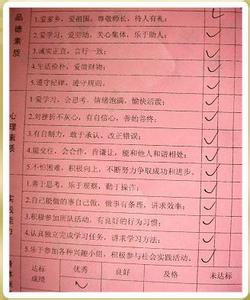 品德素质
1.爱家乡，爱祖国，尊敬师长，待人有礼；
2.爱学习，爱劳动，关心集体，乐于助人；
3.诚实正直，言行一致；
4.生活俭朴，爱惜财物；
5.遵守纪律，遵守规则。
心理素质
1.爱学习，会思考，情绪饱满，愉快活泼；
2.对挫折不灰心，有自信心，善的善终；
3.有自制力，敢于承认、改正错误；
4.能交往，会合作，肯谦让，能和他人和谐相处；
5.不怕困难，积极向上，不断努力争取成功和进步。
1.善于思考，乐于观察，勤于操作；
2.自己能做的事自己做，做事有条理，讲求效率；
3.积极参加班队活动，有良好的行为习惯；
4.认真独立完成学习任务，讲求学习方法；
5.乐于参加各种兴趣小组，积极参与社会实践活动。
达标成绩 优秀 良好 及格 未达标